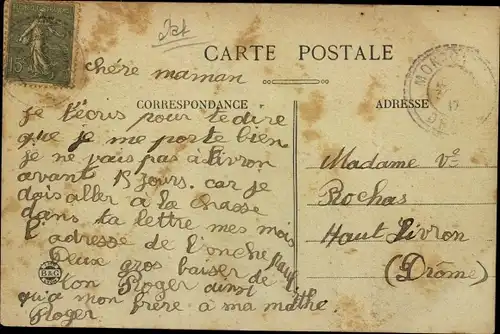 CARTE POSTALE
chére maman
CORRESPONDANCE
ADRESSE
je t'écris pour te dire
que je me porte bien
je ne vais pas à Livron
avant 15 jours. car je
dois aller à la chasse
dans ta lettre mes mois
l'adresse de l'oncle
Deux gros baiser de
ton Roger ainsi
qu'a mon frère à ma
Roger
Madame Vᵉ
Rochas
Haut Livron
(Drôme)
15
B&G